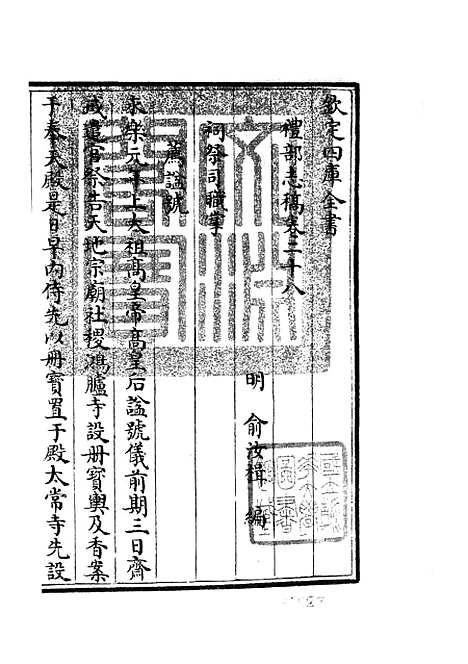 欽定四庫全書
禮部志稿卷二十八
明 俞汝楫 編
祠祭司職掌
薦謚號
永樂元年上太祖高皇帝高皇后謚號儀前期三日齊
戒遣官祭告天地宗廟社稷鴻臚寺設冊寶輿及香案
于奉天殿是日早内侍先以冊寶置于殿太常寺先設